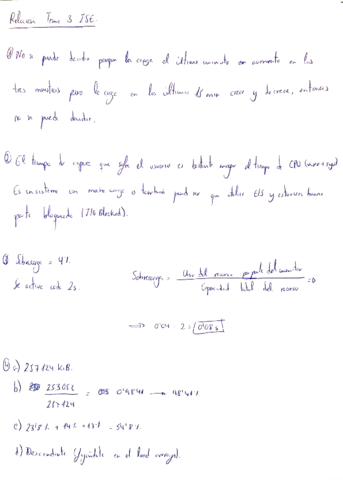 Relación Tema 3 ISE.
① No se puede decidir porque la carga el último minuto en aumento en los
tres monitores pero la carga en los últimos 15 min crece y decrece, entonces
no se puede decidir.
② El tiempo de que el usuario es bastante mayor al tiempo de CPU (user+sys)
Es un sistema con mucha carga o también puede ser que utilice E/S y estuviera
parte bloqueado (I/O Blocked).
③ Sobrecarga = 4%
Se activa cada 2s.
Sobrecarga = Uso del recurso por parte del monitor
Capacidad total del recurso
⟹ 0'04 · 2 = 0'08 s
④ a) 257124 KiB.
b) 253052
257124 = 0'9841 → 98'41%
c) 23'8% + 14% + 13% = 54'8%
d) Descendente en el load average.